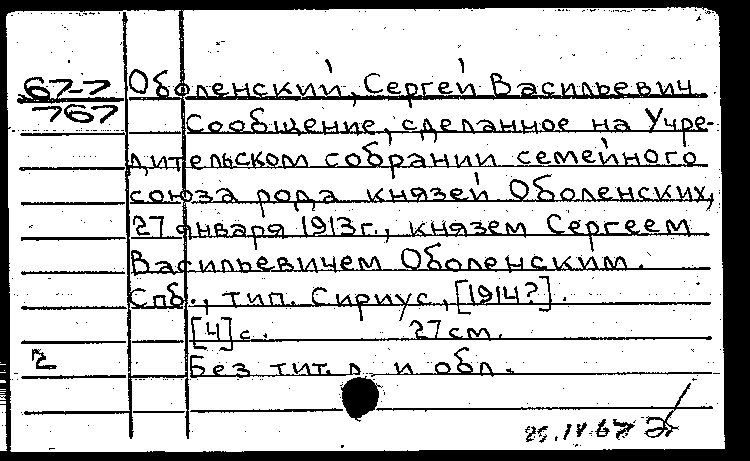 67-7
767
Оболенский, Сергей Васильевич
Сообщение, сделанное на Учре-
дительском собрании семейного
союза рода князей Оболенских,
27 января 1913г., князем Сергеем
Васильевичем Оболенским.
Спб., тип. Сириус, [1914?].
[4] с. 27 см.
2
Без тит. л. и обл.
25.IV.67